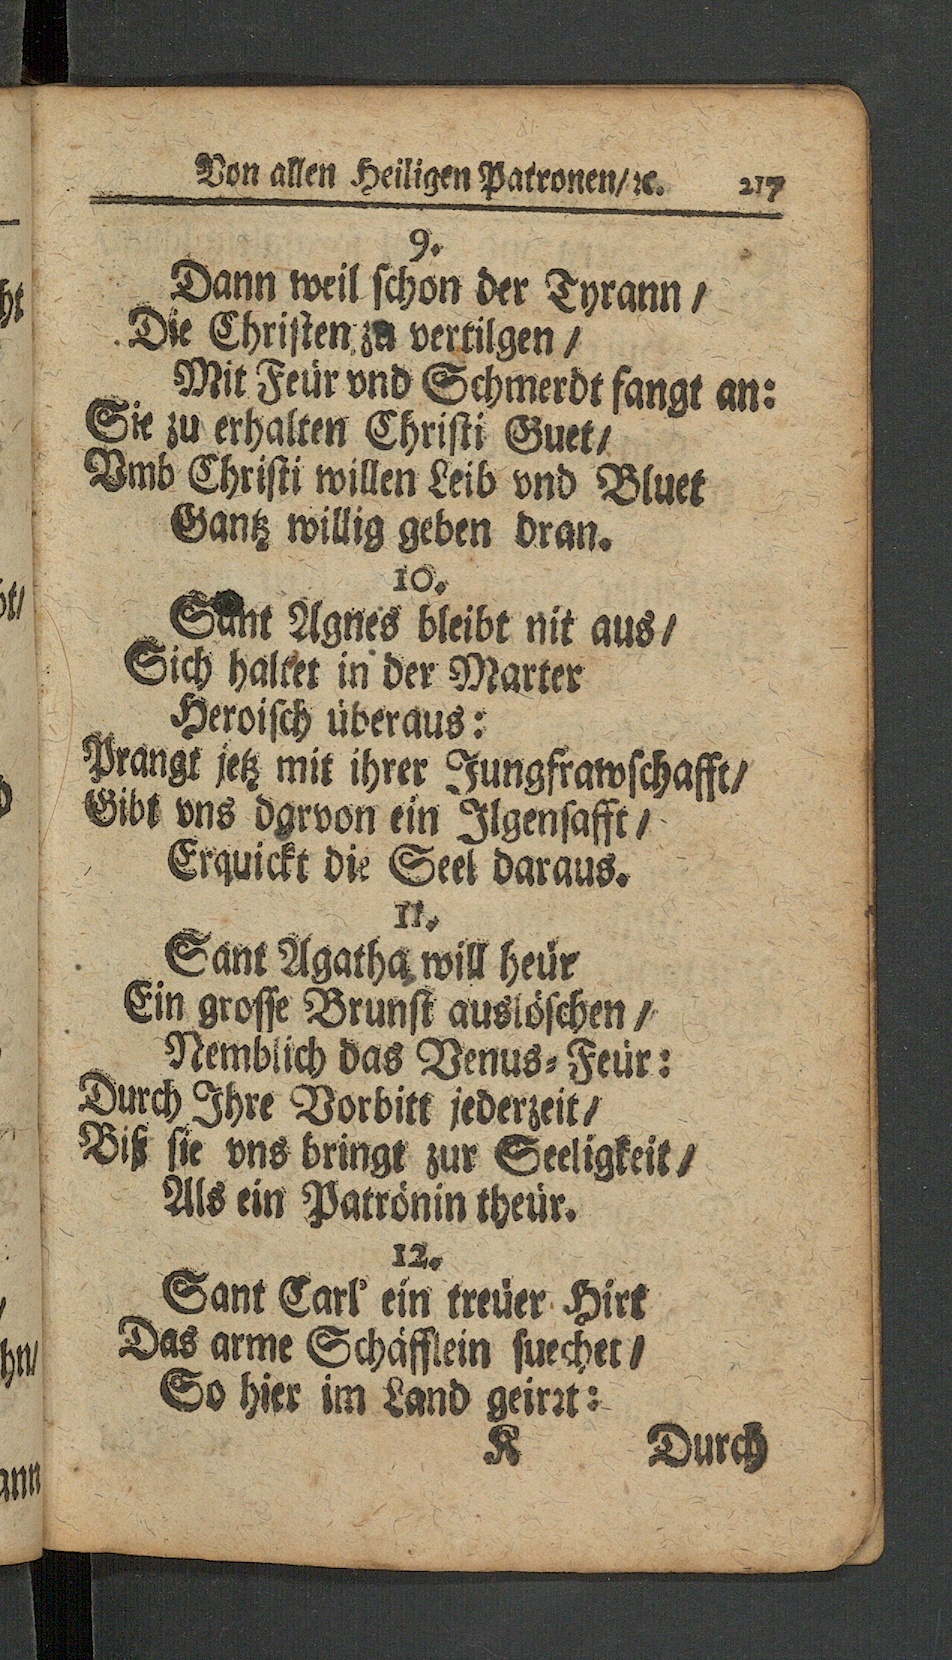 Von allen Heiligen Patronen/ ꝛc. 217
9.
Dann weil schon der Tyrann /
Die Christen zu vertilgen /
Mit Feür vnd Schmerdt fangt an:
Sie zu erhalten Christi Guet/
Vmb Christi willen Leib vnd Bluet
Gantz willig geben dran.
10.
Sant Agnes bleibt nit aus /
Sich haltet in der Marter
Heroisch überaus:
Prangt jetz mit ihrer Jungfrawschafft/
Gibt vns darvon ein Ilgensafft /
Erquickt die Seel daraus.
11.
Sant Agatha will heür
Ein grosse Brunst auslöschen /
Nemblich das Venus-Feür:
Durch Ihre Vorbitt jederzeit/
Biß sie vns bringt zur Seeligkeit /
Als ein Patrönin theür.
12.
Sant Carl' ein treüer Hirt
Das arme Schäfflein suechet /
So hier im Land geirꝛt:
K Durch